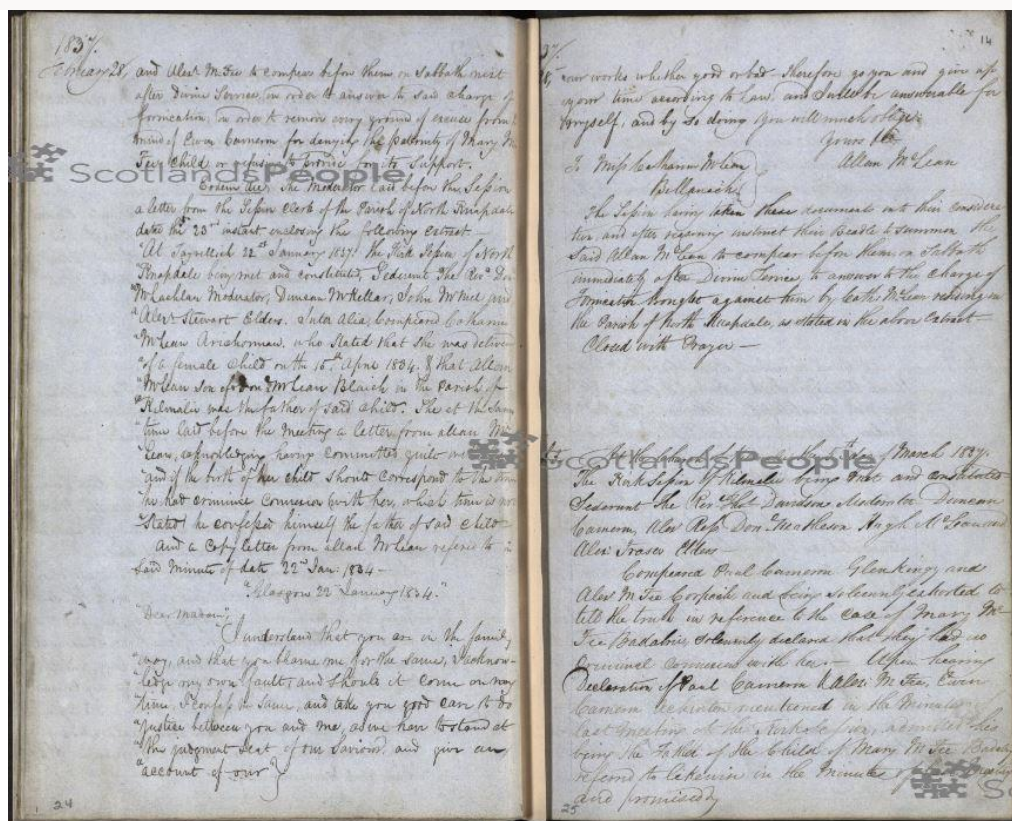 1837.
February 28, and Alexr McFee to compear before them on Sabbath next
after Divine Service, in order to answer to said charge of
fornication, in order to remove every ground of excuse from
mind of Ewen Cameron for denying the paternity of Mary Mc
Fee's Child or refusing to provide for its support.
Eodem die, The Moderator laid before the Session
a letter from the Session Clerk of the Parish of North Knapdale
date the 23rd instant enclosing the following extract —
"At Tayvallich 22nd January 1837. the Kirk Session of North
"Knapdale being met and constituted, Sederunt The Revd Don
"McLachlan Moderator, Duncan McKellar, John McNiel and
"Alexr Stewart Elders. Inter Alia, Compeared Catharine
"McLean who stated that she was deliver
"of a female Child on the 15th April 1834. & that Allan
"McLean Son of Don McLean Blaich in the Parish of
"Kilmalie was the father of said child. She at the same
"time laid before the meeting a letter from Allan Mc
"Lean, acknowledging having committed guilt
"and if the birth of her child should correspond to the time
"he had criminal Connexion with her, which time is not
"Stated he confessed himself the father of said child"
And a Copy letter from Allan McLean refered to in
said Minute of date 22d Jan: 1834 —
"Glasgow 22 January 1834."
"Dear Madam,"
I understand that you are in the family
"way, and that you blame me for the same, I acknow-
"ledge my own fault, and should it come on my
"time, I confess the same, and take you good care to do
"justice between you and me, as we have to stand at
"the judgment seat of our Saviour, and give an
"account of our
24
14
37.
28, our works whether good or bad therefore go you and give up
your time according to Law, and I will be answerable for
myself, and by so doing you will much oblige
Yours &c
Allan McLean
To Miss Catharine McLean
Bellanach
The Session having taken these document into their considera
tion, and after reasoning instruct their Beadle to summon the
said Allan McLean to compear before them on Sabbath
immediately after Divine Service, to answer to the charge of
Fornication brought against him by Cathe McLean residing in
the Parish of North Knapdale, as stated in the above Extract
Closed with Prayer —
At the the March 1837.
The Kirk Session of Kilmalie being met and constituted
Sederunt The Revd Thos Davidson Moderator Duncan
Cameron, Alexr Ross, Don Matheson Hugh McLean and
Alexr Fraser Elders —
Compeared Paul Cameron Glenkingy and
Alexr McFee Corpach and being solemnly exhorted to
tell the truth in reference to the case of Mary Mc
Fee Badabrie, solemnly declared that they had no
Criminal Connexion with her. — Upon hearing
Declaration of Paul Cameron & Alexr McFee, Ewen
Cameron mentioned in the Minutes of
last meeting of the Kirk Session, admitted his
being the Father of the Child of Mary McFee
referred to likewise in the Minutes of
and promised
25
ScotlandsPeople
ScotlandsPeople